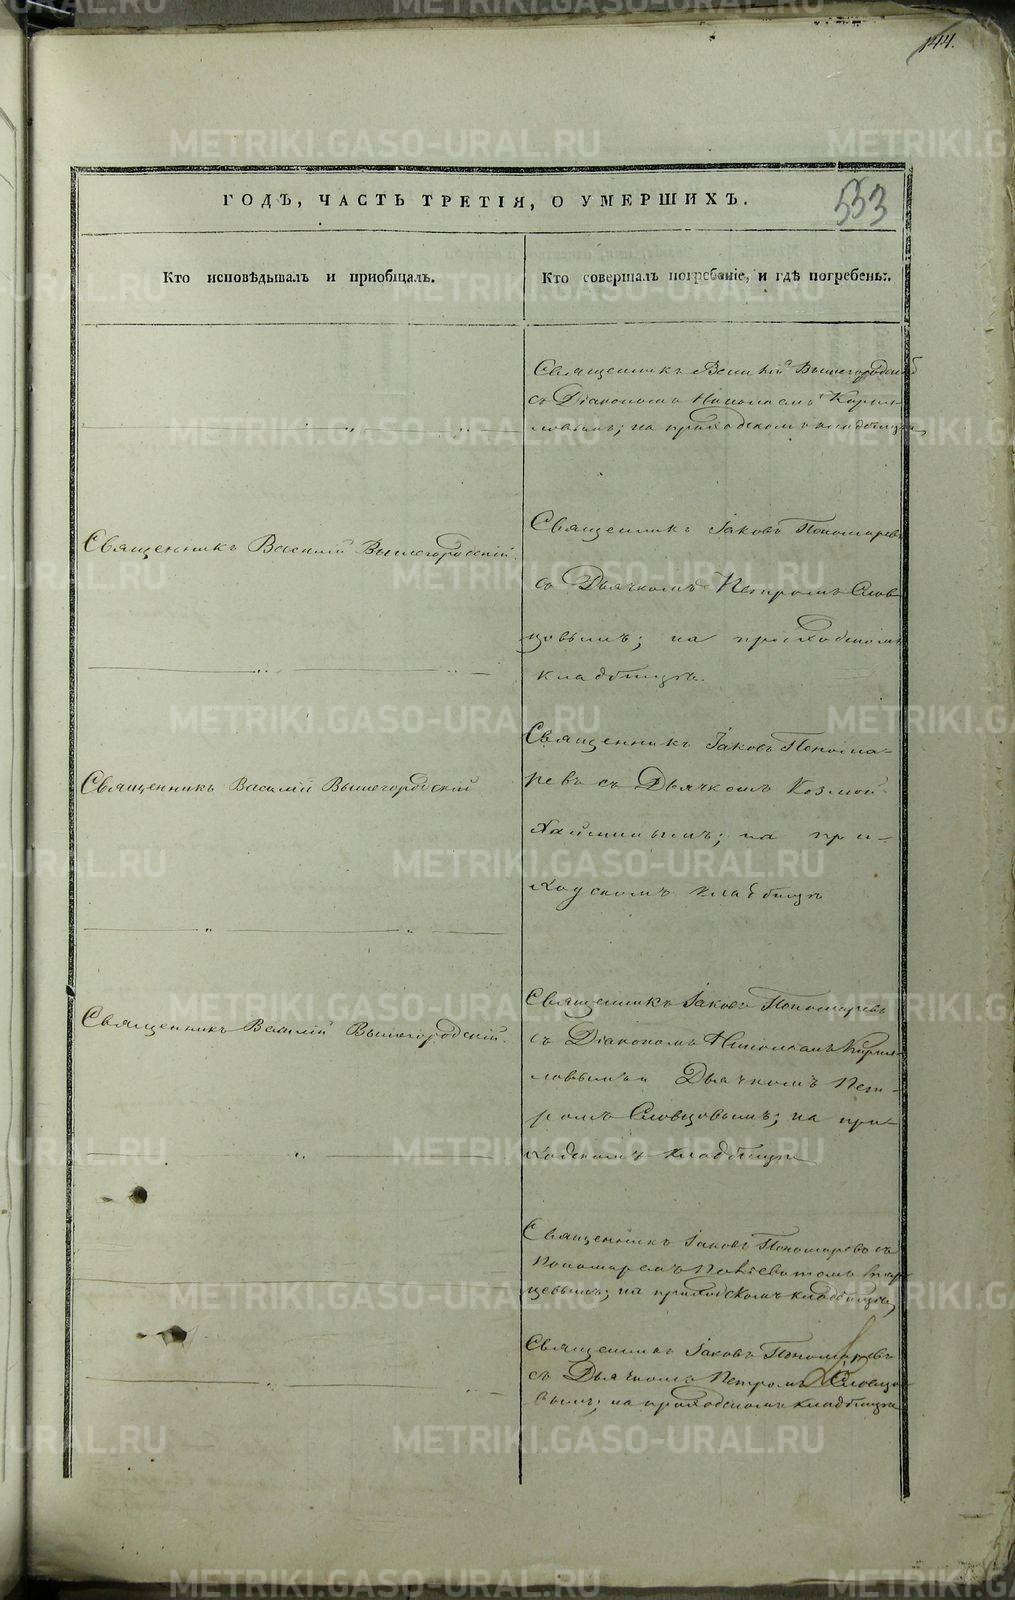 144.
ГОДЪ, ЧАСТЬ ТРЕТІЯ, О УМЕРШИХЪ.
553
Кто исповѣдывалъ и пріобщалъ.
Кто совершалъ погребеніе, и гдѣ погребены.
Священникъ Василій Вышегородскій
съ Діакономъ Николаемъ Кирил-
ловымъ; на приходскомъ кладбищѣ,
Священникъ Василій Вышегородскій.
Священникъ Іаковъ Пономаревъ
съ Дьячкомъ Петромъ Слов
цовымъ; на приходскомъ
кладбищѣ.
Священникъ Василій Вышегородскій
Священникъ Іаковъ Понома-
ревъ съ Дьячкомъ Козмой
на при-
ходскомъ кладбищѣ
Священникъ Василій Вышегородскій.
Священникъ Іаковъ Пономаревъ
съ Діакономъ Николаемъ Кирил-
ловымъ и Дьячкомъ Пет-
ромъ Словцовымъ; на при-
ходскомъ кладбищѣ
Священникъ Іаковъ Пономаревъ съ
Пономаремъ
на приходскомъ кладбищѣ,
Священникъ Іаковъ Пономаревъ
съ Дьячкомъ Петромъ Словцо
вымъ; на приходскомъ кладбищѣ
METRIKI.GASO-URAL.RU